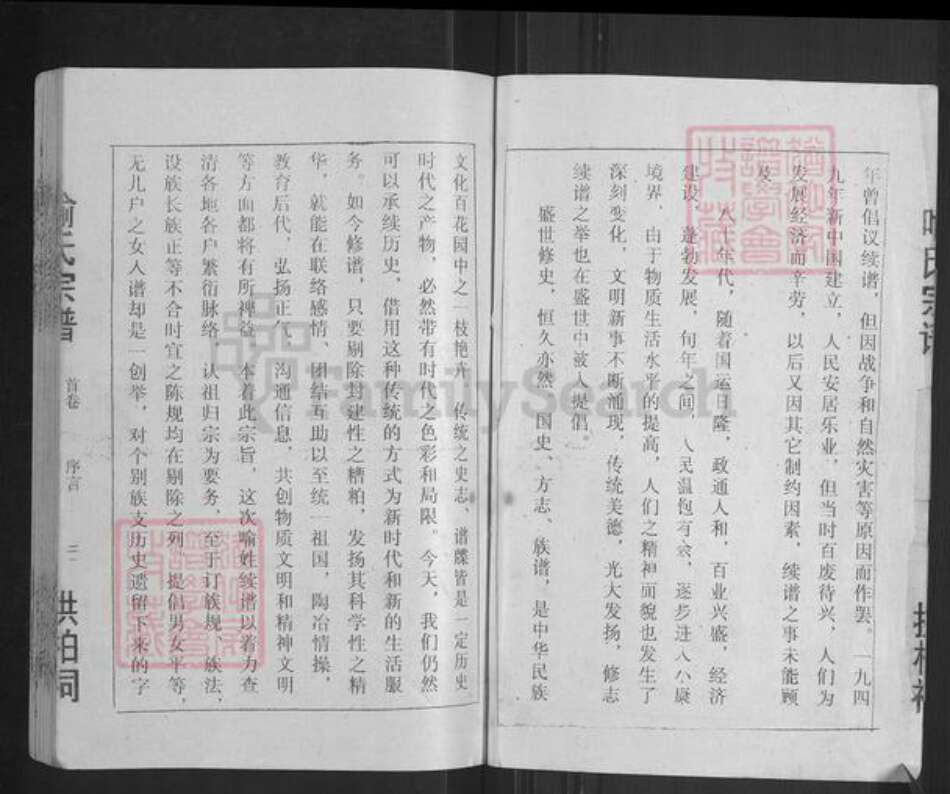 年曾倡议续谱，但因战争和自然灾害等原因而作罢。一九四
九年新中国建立，人民安居乐业，但当时百废待兴，人们为
发展经济而辛劳，以后又因其它制约因素，续谱之事未能顾
及。
八十年代，随着国运日隆，政通人和，百业兴盛，经济
建设，蓬勃发展，旬年之间，人民温饱有余，逐步进入小康
境界，由于物质生活水平的提高，人们之精神面貌也发生了
深刻变化，文明新事不断涌现，传统美德，光大发扬，修志
续谱之举也在盛世中被人提倡。
盛世修史，恒久亦然。国史、方志、族谱，是中华民族
文化百花园中之一枝艳卉，传统之史志、谱牒皆是一定历史
时代之产物，必然带有时代之色彩和局限。今天，我们仍然
可以承续历史，借用这种传统的方式为新时代和新的生活服
务。如今修谱，只要剔除封建性之糟粕，发扬其科学性之精
华，就能在联络感情、团结互助以至统一祖国，陶冶情操，
教育后代，弘扬正气，沟通信息，共创物质文明和精神文明
等方面都将有所裨益。本着此宗旨，这次喻姓续谱以着力查
清各地各户繁衍脉络，认祖归宗为要务，至于订族规、族法、
设族长族正等不合时宜之陈规均在剔除之列，提倡男女平等，
无儿户之女入谱却是一创举，对个别族支历史遗留下来的字
喻氏宗谱
首卷
序言
三
洪柏祠
FamilySearch